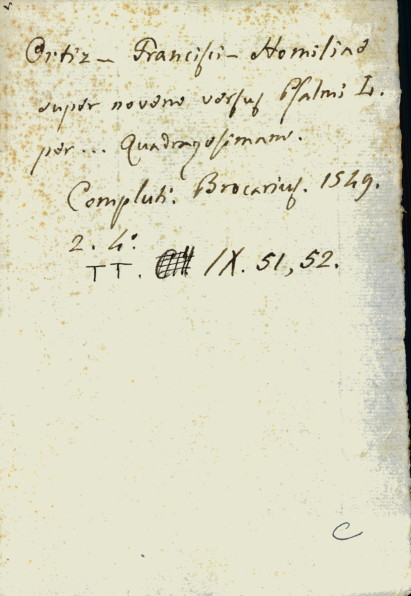 Ortiz - Francisci - Homiliae
super novem versus Psalmi L.
per ... Quadragesimam.
Compluti. Brocarius. 1549.
2. 4º
TT. IX. 51, 52.
C